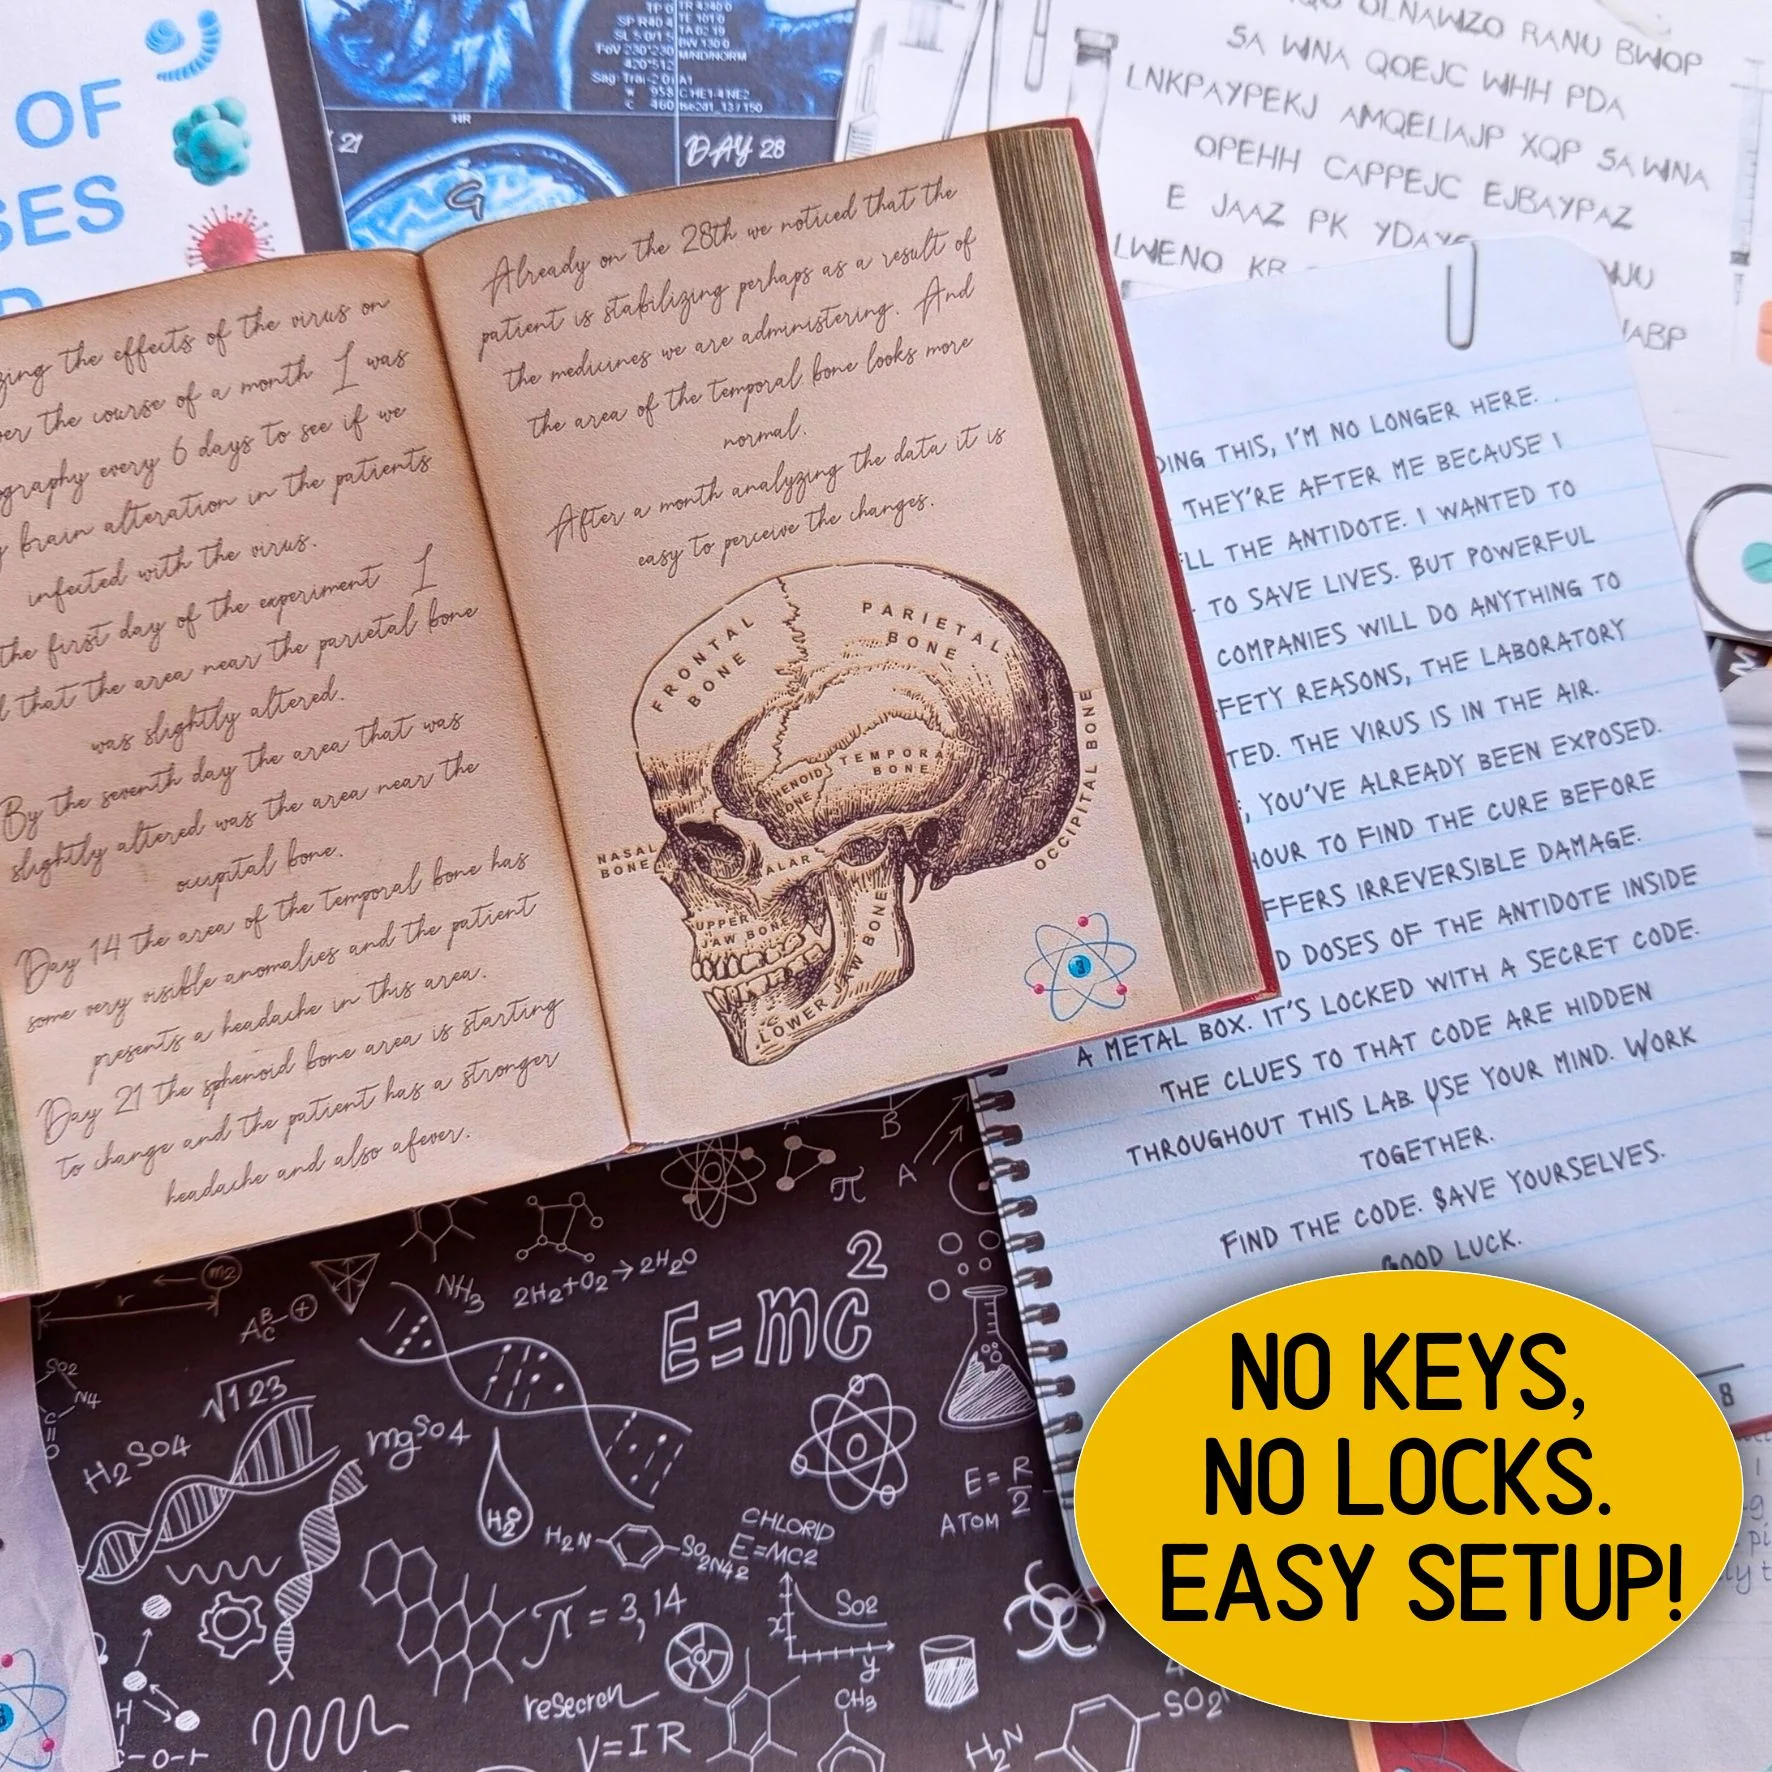 OF
SES
TP 0
SP R40.4
SL 5.0/1.5
FoV 230*230
420*512
Sag: Tra(-2.0)
W 958
C 460
TR 4340.0
TE 101.0
TA 02:19
BW 130.0
M/ND/NORM
A1
HR
21
DAY 28
G
OLNAWZO RANU BWOP
SA WNA QOEJC WHH PDA
LNKPAYPEKJ AMQELIAJP XQP SA WNA
OPEHH CAPPEJC EJBAYPAZ
E JAAZ PK YDAYG
LWENO KB
JABP
zing the effects of the virus on
er the course of a month I was
ography every 6 days to see if we
brain alteration in the patients
infected with the virus.
the first day of the experiment I
d that the area near the parietal bone
was slightly altered.
By the seventh day the area that was
slightly altered was the area near the
occipital bone.
Day 14 the area of the temporal bone has
some very visible anomalies and the patient
presents a headache in this area.
Day 21 the sphenoid bone area is starting
to change and the patient has a stronger
headache and also afever.
Already on the 28th we noticed that the
patient is stabilizing perhaps as a result of
the medicines we are administering. And
the area of the temporal bone looks more
normal.
After a month analyzing the data it is
easy to perceive the changes.
FRONTAL
BONE
PARIETAL
BONE
TEMPORA
BONE
HENOID
ONE
OCCIPITAL BONE
NASAL
BONE
ALAR
UPPER
JAW BON
LOWER JAW BONE
3
DING THIS, I'M NO LONGER HERE.
THEY'RE AFTER ME BECAUSE I
LL THE ANTIDOTE. I WANTED TO
TO SAVE LIVES. BUT POWERFUL
COMPANIES WILL DO ANYTHING TO
FETY REASONS, THE LABORATORY
TED. THE VIRUS IS IN THE AIR.
, YOU'VE ALREADY BEEN EXPOSED.
HOUR TO FIND THE CURE BEFORE
FFERS IRREVERSIBLE DAMAGE.
D DOSES OF THE ANTIDOTE INSIDE
A METAL BOX. IT'S LOCKED WITH A SECRET CODE.
THE CLUES TO THAT CODE ARE HIDDEN
THROUGHOUT THIS LAB. USE YOUR MIND. WORK
TOGETHER.
FIND THE CODE. SAVE YOURSELVES.
GOOD LUCK.
8
M
B
A
π
m2
r
NH3
2H2+O2→2H2O
E=mc2
√123
SO2
N4
C
O
H2SO4
mgSO4
H2O
H2N
SO2N42
CHLORID
E=MC2
E=R/2
ATOM
π=3,14
SO2
x
y
research
V=IR
CH3
H2N
SO2
H
C-O-H
NO KEYS,
NO LOCKS.
EASY SETUP!